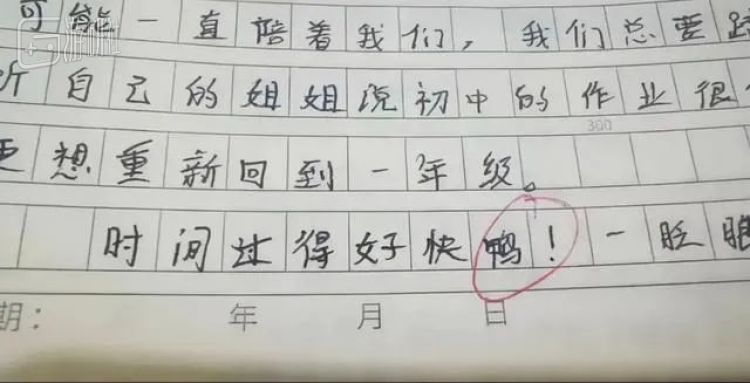 游戏社
可能一直陪着我们，我们总要
听自己的姐姐说初中的作业很
300
更想重新回到一年级。
时间过得好快鸭！一眨眼
期： 年 月 日